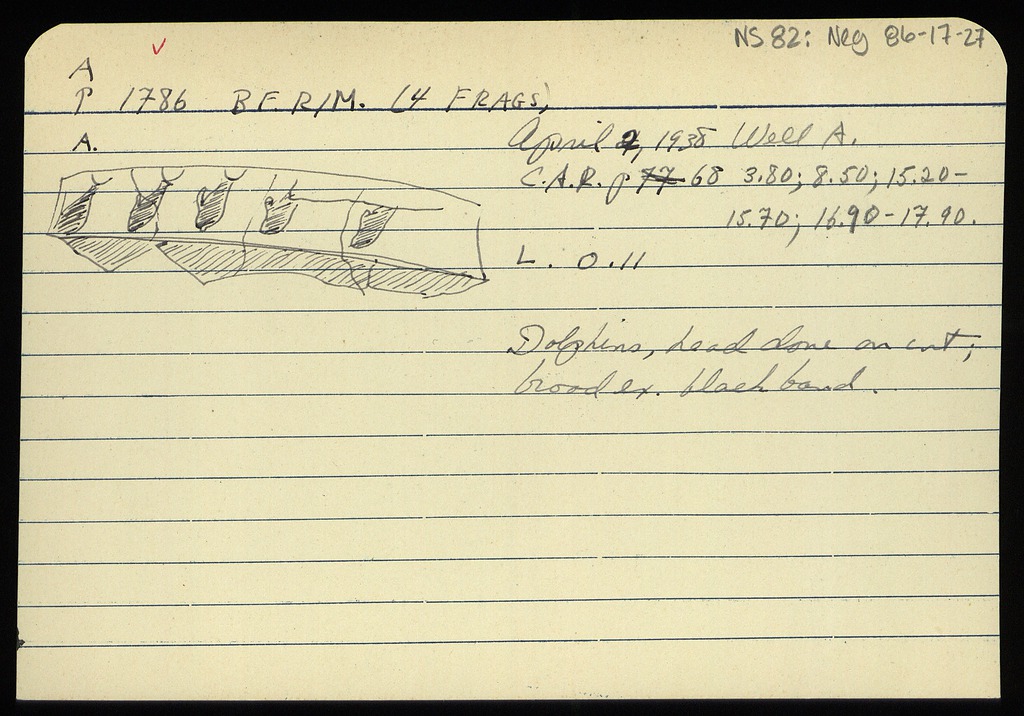 NS 82: Neg 86-17-27
A
P 1786 B F. RIM. (4 FRAGS)
A.
April 2, 1938 Well A.
C.A.R. p 77 68 3.80; 8.50; 15.20-
15.70; 16.90-17.90.
L. 0.11
Dolphins, head done on cut;
broad ex. black band.